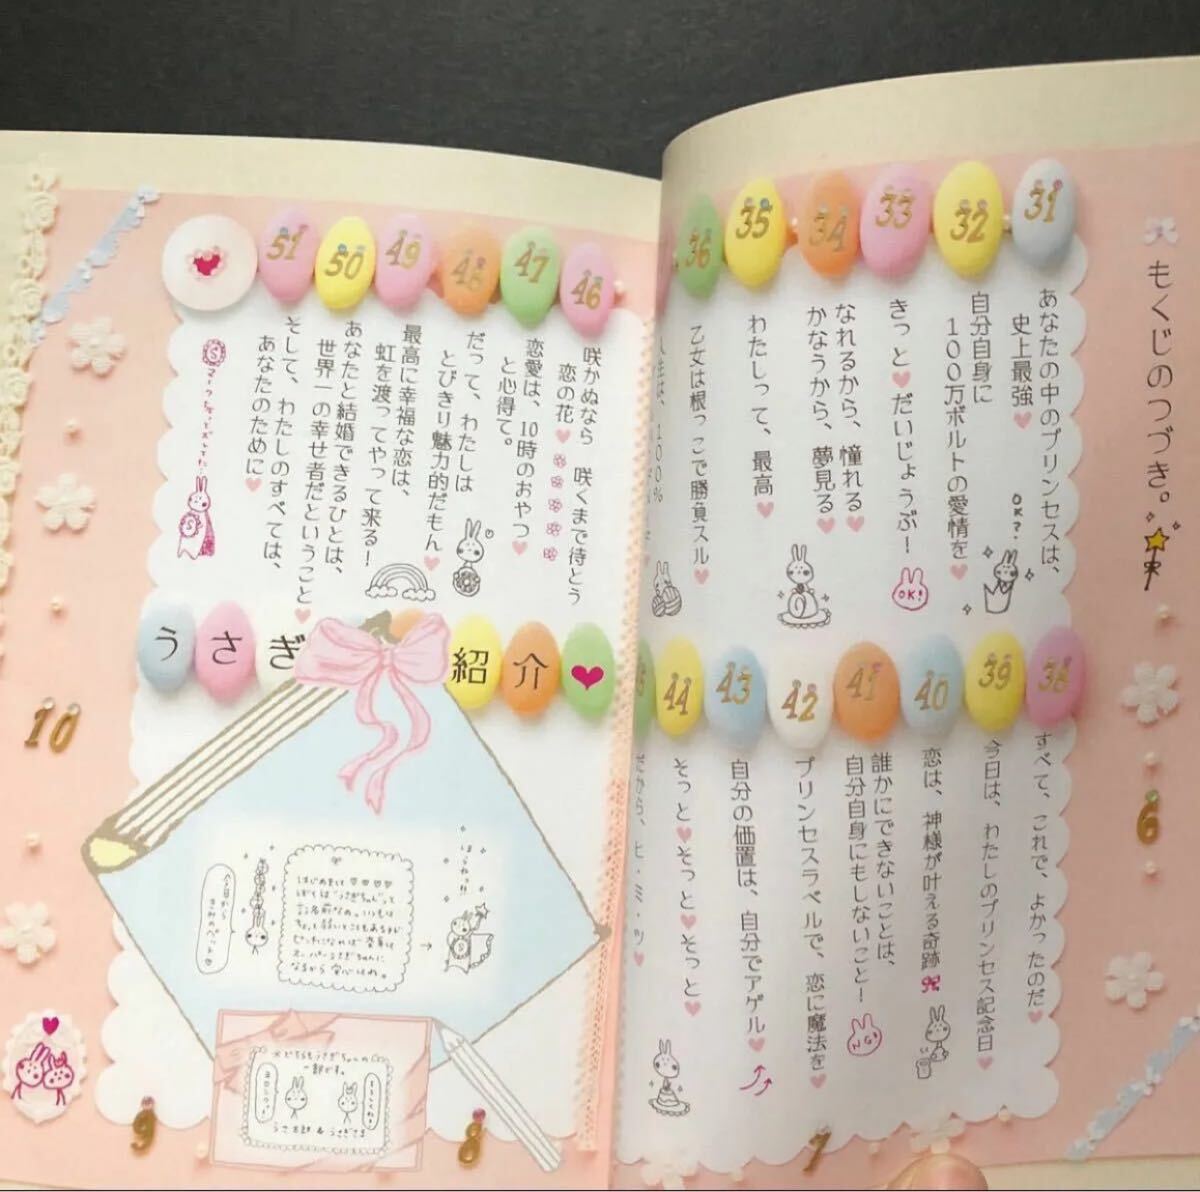 もくじのつづき。
31
あなたの中のプリンセスは、
史上最強♥
32
自分自身に
100万ボルトの愛情を♥
OK?
33
きっと♥だいじょうぶ!
OK!
34
なれるから、憧れる♥
かなうから、夢見る♥
35
わたしって、最高♥
36
乙女は根っこで勝負スル♥
人生は、100%
38
すべて、これで、よかったのだ♥
39
今日は、わたしのプリンセス記念日♥
40
恋は、神様が叶える奇跡
41
誰かにできないことは、
自分自身にもしないこと!
NG!
42
プリンセスラベルで、恋に魔法を♥
43
自分の価置は、自分でアゲル♥
44
そっと♥そっと♥そっと♥
だから、ヒ・ミ・ツ♥
6
7
46
咲かぬなら 咲くまで待とう
恋の花♥
47
恋愛は、10時のおやつ♥
と心得て。
48
だって、わたしは
とびきり魅力的だもん♥
49
最高に幸福な恋は、
虹を渡ってやって来る!
50
あなたと結婚できるひとは、
世界一の幸せ者だということ♥
51
そして、わたしのすべては、
あなたのために♥
S
うさぎ
紹介♥
はじめまして♥♥♥♥
ぼくは"うさぎちゃん"って
S
今日から
きみのペット♥
※どちらもうさぎちゃんの
一部です。
ヨロシク♥
よろしくね♥
8
9
10